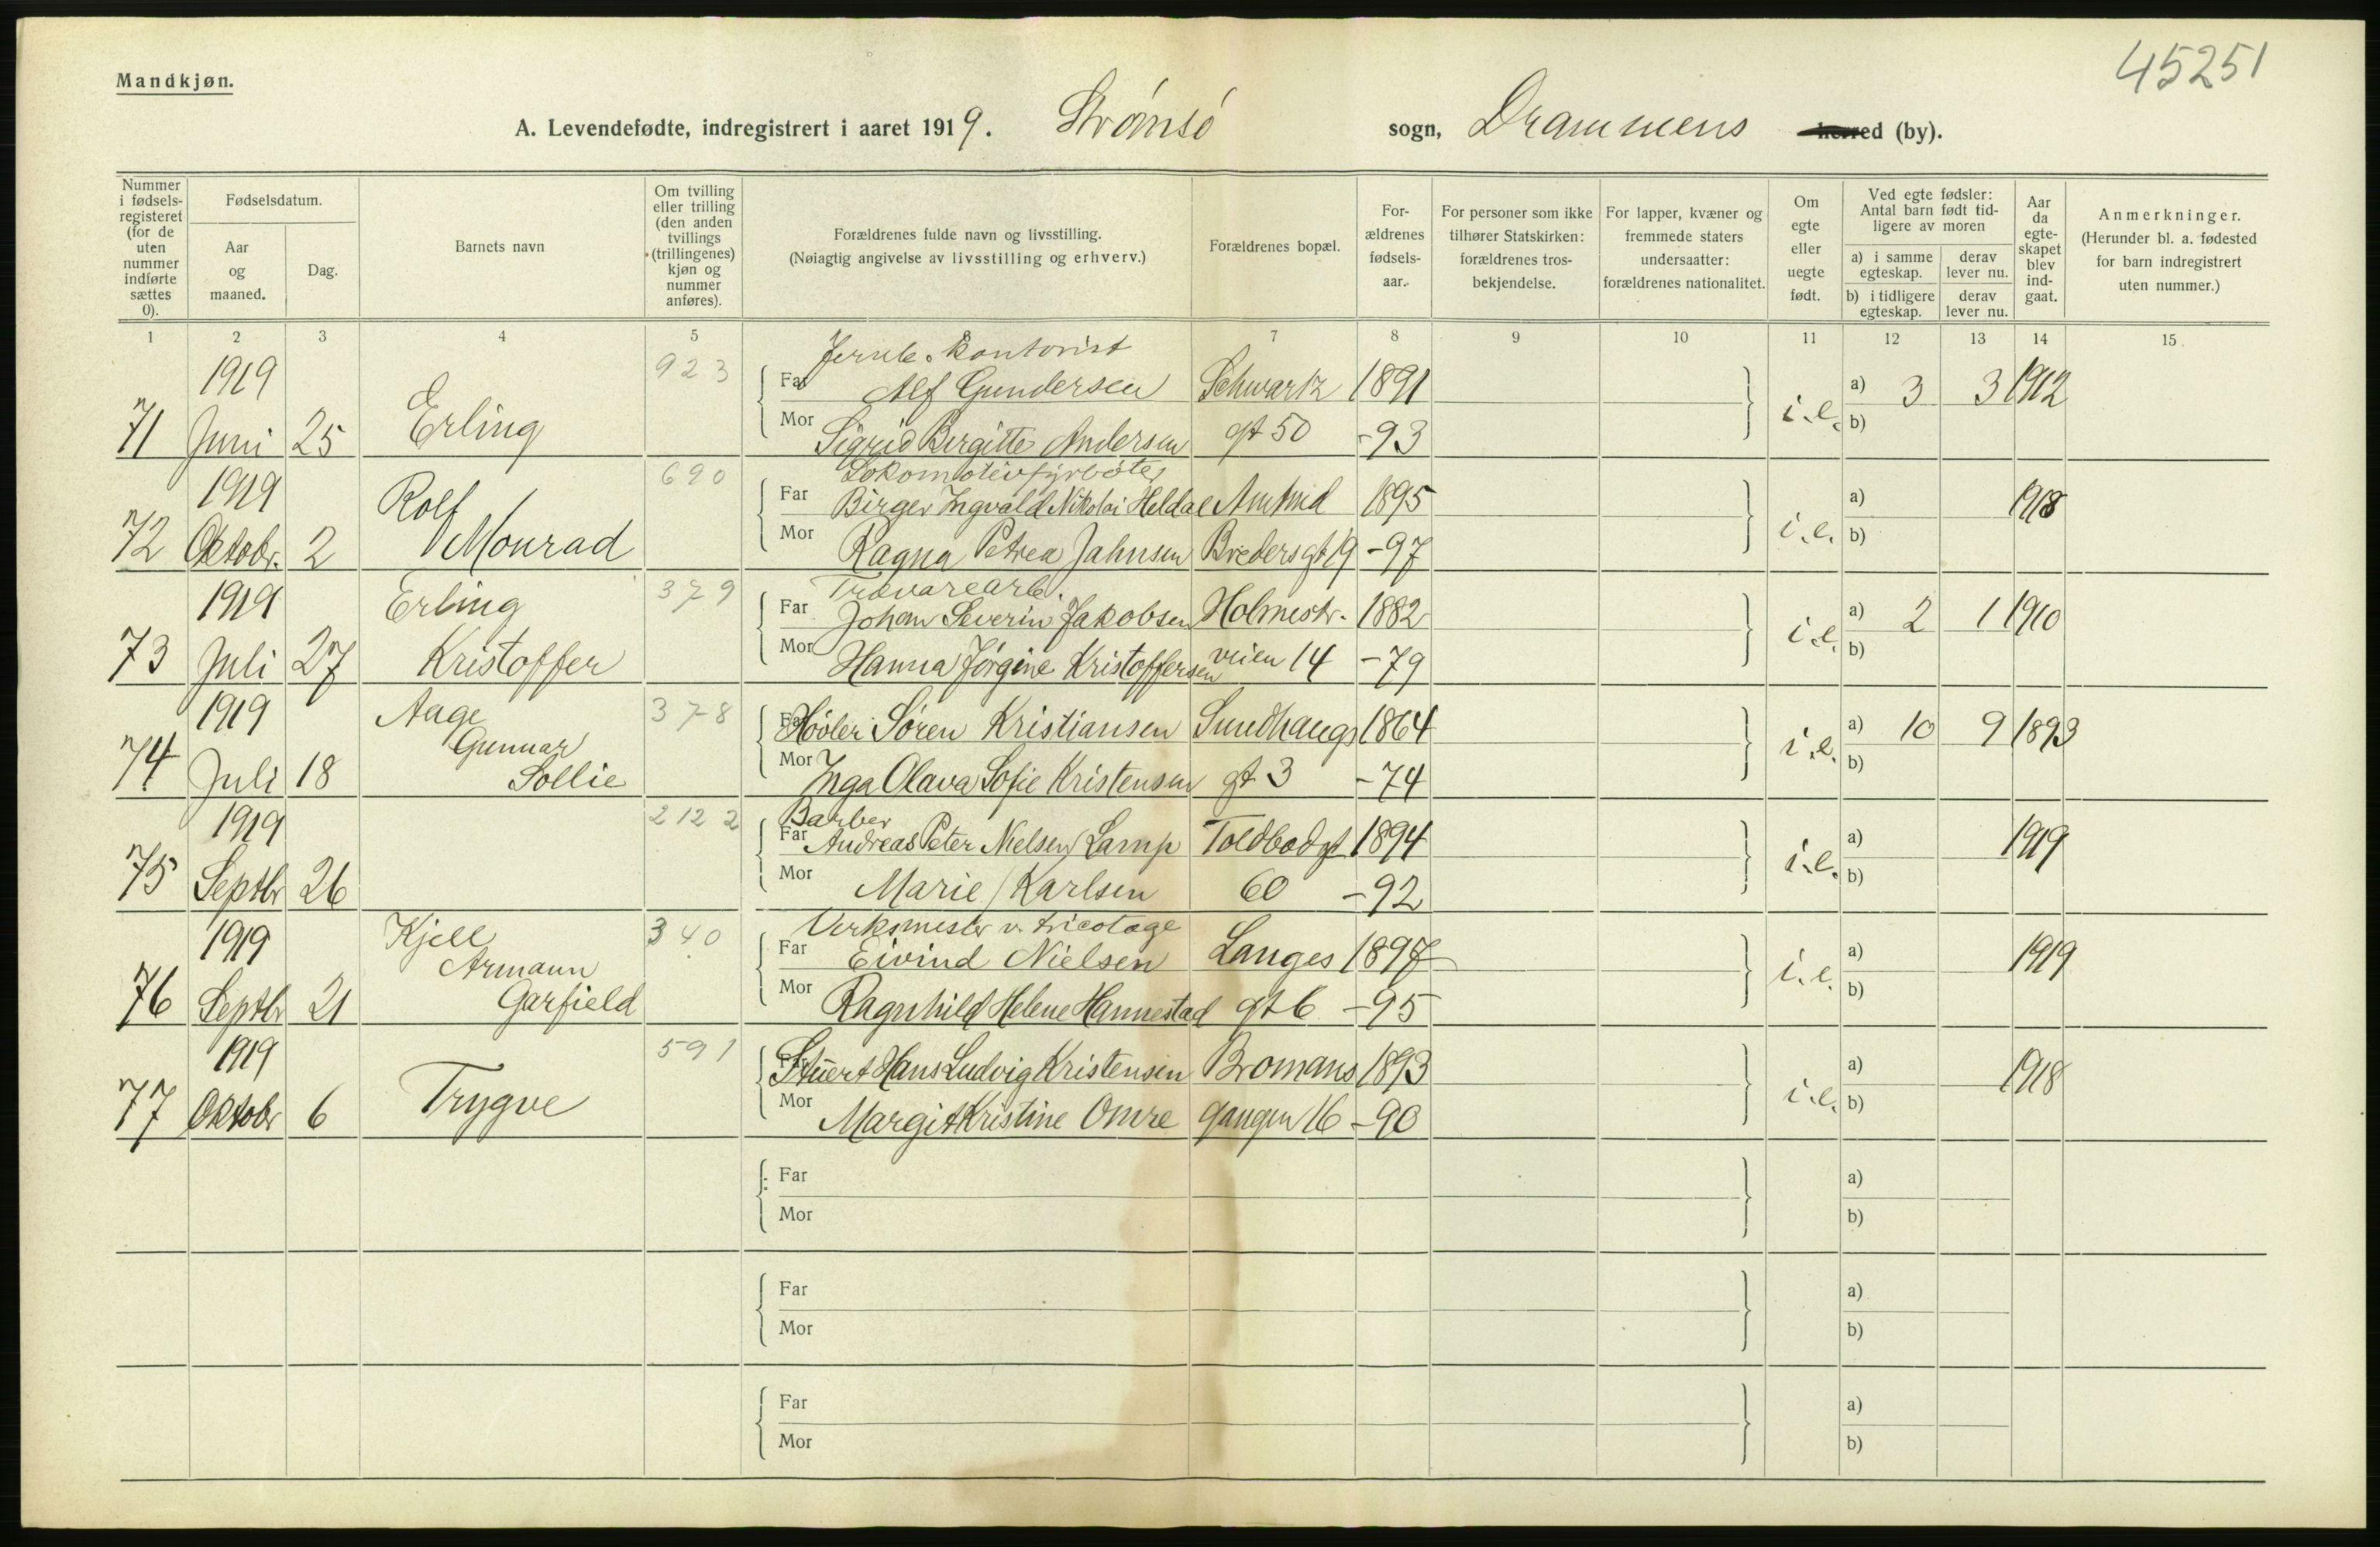 Mandkjøn.
45251
A. Levendefødte, indregistrert i aaret 1919. Strømsø sogn, Drammens herred (by).
Nummer i fødsels-registeret (for de uten nummer indførte sættes 0).
Fødselsdatum.
Aar og maaned.
Dag.
Barnets navn
Om tvilling eller trilling (den anden tvillings (trillingenes) kjøn og nummer anføres).
Forældrenes fulde navn og livsstilling.
(Nøiagtig angivelse av livsstilling og erhverv.)
Forældrenes bopæl.
For-ældrenes fødsels-aar.
For personer som ikke tilhører Statskirken: forældrenes tros-bekjendelse.
For lapper, kvæner og fremmede staters undersaatter: forældrenes nationalitet.
Om egte eller uegte født.
Ved egte fødsler: Antal barn født tid-ligere av moren
a) i samme egteskap.
derav lever nu.
b) i tidligere egteskap.
derav lever nu.
Aar da egte-skapet blev ind-gaat.
Anmerkninger.
(Herunder bl. a. fødested for barn indregistrert uten nummer.)
1 2 3 4 5 6 7 8 9 10 11 12 13 14 15
1919 923 Jernb. kontorist
Far Alf Gundersen Schwartz 1891 a) 3 3 1912
71 Juni 25 Erling Mor Sigrid Birgitte Andersen gt 50 -93 i.e. b)
1919 690 Lokomotivfyrbøter
Rolf Far Birger Ingvald Nikolai Heldal Amtmd 1895 a) 1918
72 Oktobr. 2 Monrad Mor Ragna Petrea Jahnsen Bredersgt 19 -97 i.e. b)
1919 Erling 379 Trævarearb.
Far Johan Severin Jakobsen Holmestr. 1882 a) 2 1 1910
73 Juli 27 Kristoffer Mor Hanna Jørgine Kristoffersen veien 14 -79 i.e. b)
1919 Aage 378 Far Høvler Søren Kristiansen Sundhaugs 1864 a) 10 9 1893
Gunnar
74 Juli 18 Sollie Mor Inga Olava Sofie Kristensen gt 3 -74 i.e. b)
1919 2122 Barber
Far Andreas Peter Nielsen Lamp Toldbodgt 1894 a) 1919
75 Septbr 26 Mor Marie Karlsen 60 -92 i.e. b)
1919 Kjell 340 Verksmester v. tricotage
Armann Far Eivind Nielsen Langes 1897 a) 1919
76 Septbr 21 Garfield Mor Ragnhild Helene Hannestad gt 6 -95 i.e. b)
1919 591 Far Stuert Hans Ludvig Kristensen Bromans 1893 a) 1918
77 Oktobr 6 Trygve Mor Margit Kristine Omre gangen 16 -90 i.e. b)
Far a)
Mor b)
Far a)
Mor b)
Far a)
Mor b)